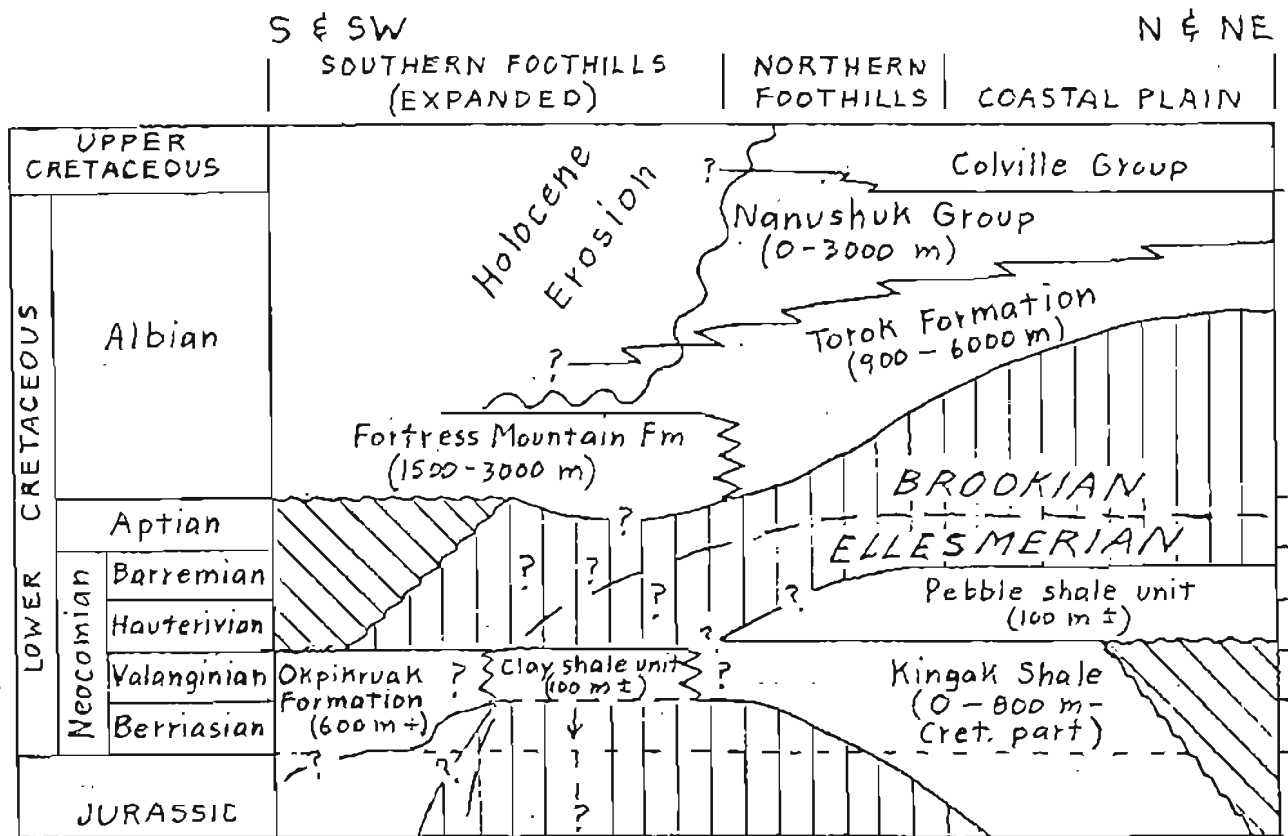 S & SW
N & NE
SOUTHERN FOOTHILLS
(EXPANDED)
NORTHERN
FOOTHILLS
COASTAL PLAIN
UPPER
CRETACEOUS
LOWER CRETACEOUS
Albian
Aptian
Neocomian
Barremian
Hauterivian
Valanginian
Berriasian
JURASSIC
Holocene
Erosion
?
Colville Group
Nanushuk Group
(0-3000 m)
?
Torok Formation
(900-6000 m)
Fortress Mountain Fm
(1500-3000 m)
?
BROOKIAN
ELLESMERIAN
?
?
?
?
?
Pebble shale unit
(100 m ±)
Okpikruak
Formation
(600 m ±)
?
Clay shale unit
(100 m ±)
?
Kingak Shale
(0-800 m-
Cret. part)
?
?
?